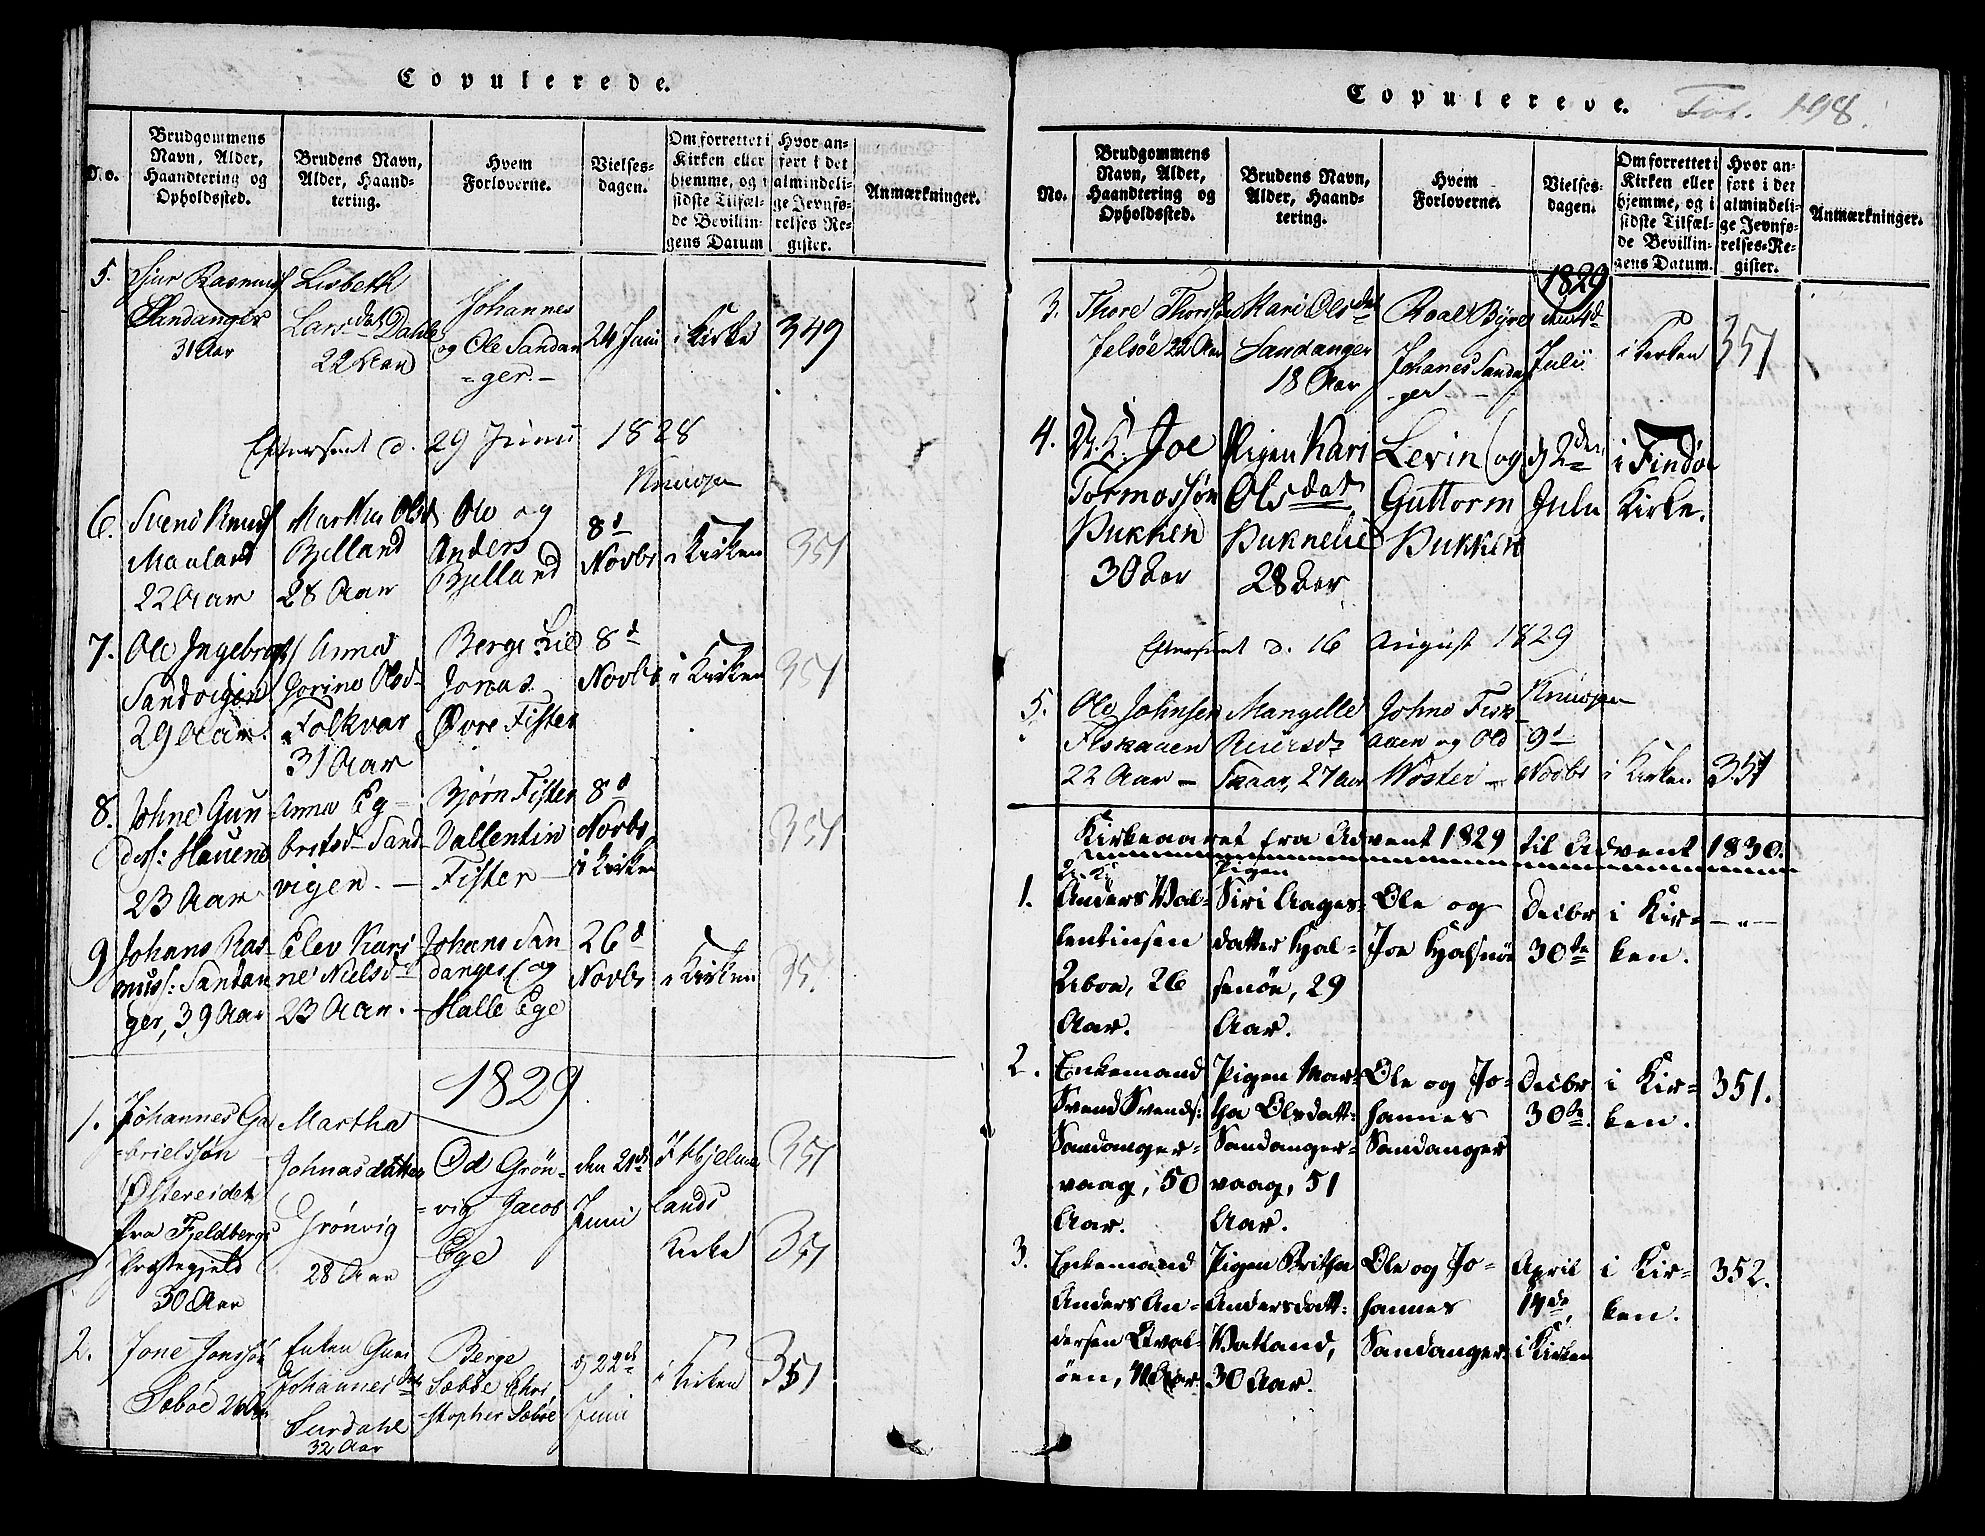 Copulerede.
No.
Brudgommens
Navn, Alder,
Haandtering og
Opholdssted.
Brudens Navn,
Alder, Haand-
tering.
Hvem
Forloverne.
Vielses-
dagen.
Om forrettet i
Kirken eller
hjemme, og i
sidste Tilfæl-
de Bevillin-
gens Datum
Hvor an-
ført i det
almindeli-
ge Jevnfø-
relses Re-
gister.
Anmærkninger.
5.
Sjur Rasmus
Sandanger
31 Aar
Lisbeth
Larsdat Dahle
22 Aar
Johannes
og Ole Sandan
=ger.-
24 Juni
i Kirke
349
Eftersent d. 29 Junii 1828
Knudsen
6.
Svend Knuds
Maaland
22 Aar
Martha Olsd
Bjelland
28 Aar
Ole og
Anders
Bjelland
8d
Novbr
i Kirken
351
7.
Ole Ingebrets
Sandvigen
29 Aar
Anna
Gorine Olsd-
Folkvar
31 Aar
Berge Lie
Jonas
Øvre Fister
8d
Novbr
i Kirken
351
8.
Johne Gun
ders: Hauene
23 Aar
Anna Eg-
bretsd- Sand
vigen. -
Bjørn Fister
Vallentin
Fister -
8d
Novbr
i Kirken
351
9
Johans Ras-
muss: Sandan
ger, 39 Aar
Elev Kari
ne Nielsd-
23 Aar. -
Johans San
danger og
Halle Ege
26d
Novbr
i Kirken
351
1829
1.
Johannes Ga
=brielssøn
Østereidet
fra Fjeldbergs
Præstegjeld
30 Aar
Martha
Johnasdatter
Grønvig
28 Aar
Od Grøn-
=vig Jacob
Ege
den 21de
Juni
I Hjelme
lands
Kirke
351
351
2.
Jone Jonssøn
Sæbøe 26 Aar
Enken Guri
Johannesdat
Surdahl
32 Aar
Berge
Sæbøe Chri
stopher Sæbøe
d 22de
Juni
i Kirken
351
Copulerede.
Fol. 198.
No.
Brudgommens
Navn, Alder,
Haandtering og
Opholdssted.
Brudens Navn,
Alder, Haand-
tering.
Hvem
Forloverne.
Vielses-
dagen.
Om forrettet i
Kirken eller
hjemme, og i
sidste Tilfæl-
de Bevillin-
gens Datum.
Hvor an-
ført i det
almindeli-
ge Jevnfø-
relses-Re-
gister.
Anmærkninger.
1829
3.
Thore Thorssen
Jelsøe 22 Aar
Kari Olsdat
Sandanger
18 Aar
Roal Byre
Johanes Sandan
=ger -
den 4d
Julii
i Kirken
351
4.
U. K. Joe
Tormossøn
Pukken
30 Aar
Pigen Kari
Olsdat
Puknelie
28 Aar
Levin og
Guttorm
Pukken
d 2den
Julu
i Findø
Kirke.
Eftersent d. 16 August 1829
Knudsen
5.
Ole Johnsen
Fiskaaen
22 Aar -
Mangelle
Reiersd-
Skaar, 27 Aar
Johne Fisk-
aaen og Old
Woster -
9d
Novbr
i Kirken
351
Kirkeaaret fra Advent 1829 til Advent 1830.
1.
U. K.
Anders Val-
lentinsen
Uboe, 26
Aar.
Pigen
Siri Aages-
datter Hjal-
senøe, 29
Aar.
Ole og
Joe Hjalsnøe
Decbr
30te
i Kir-
ken.
-"-
2.
Enkemand
Svend Svends:
Sandanger-
vaag, 50
Aar.
Pigen Mar-
tha Olsdatt:
Sandanger-
vaag, 51
Aar.
Ole og Jo-
hannes
Sandanger
Decbr
30te.
i Kir-
ken.
351.
3.
Enkemand
Anders An-
dersen Qval-
øen, Aar.
Pigen Britha
Andersdatt:
Vatland,
30 Aar.
Ole og Jo-
hannes
Sandanger
April
14de,
i Kirken
i Kir-
ken.
352.